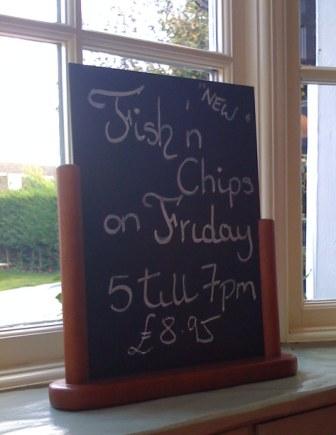 "NEW"
Fish 'n
Chips
on Friday
5 till 7pm
£8.95